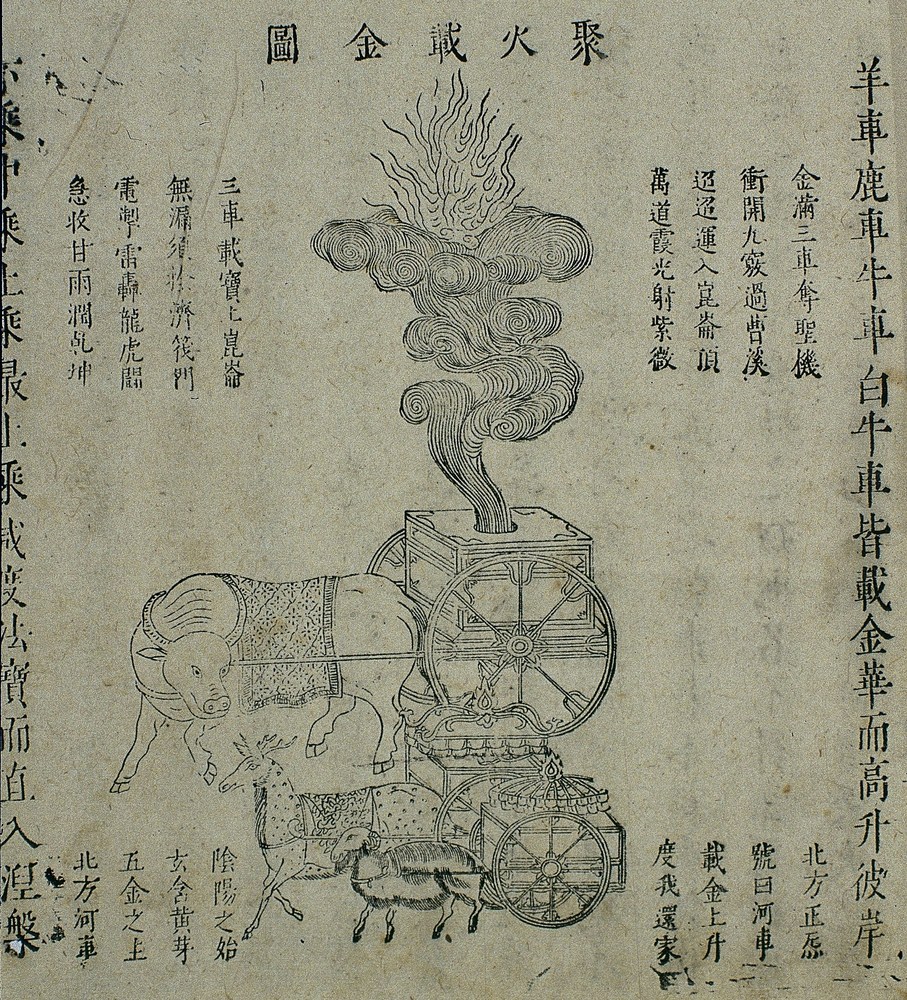 聚火載金圖
羊車鹿車牛車白牛車皆載金華而高升彼岸
金滿三車奪聖機
衝開九竅過曹溪
迢迢運入崑崙頂
萬道霞光射紫微
三車載寶上崑崙
無漏須 濟筏門
電掣雷轟龍虎鬪
急收甘雨潤乾坤
北方正炁
號曰河車
載金上升
度我還家
陰陽之始
玄含黄芽
五金之主
北方河車
乘中乘上乘最上乘咸度法寶而直入涅槃